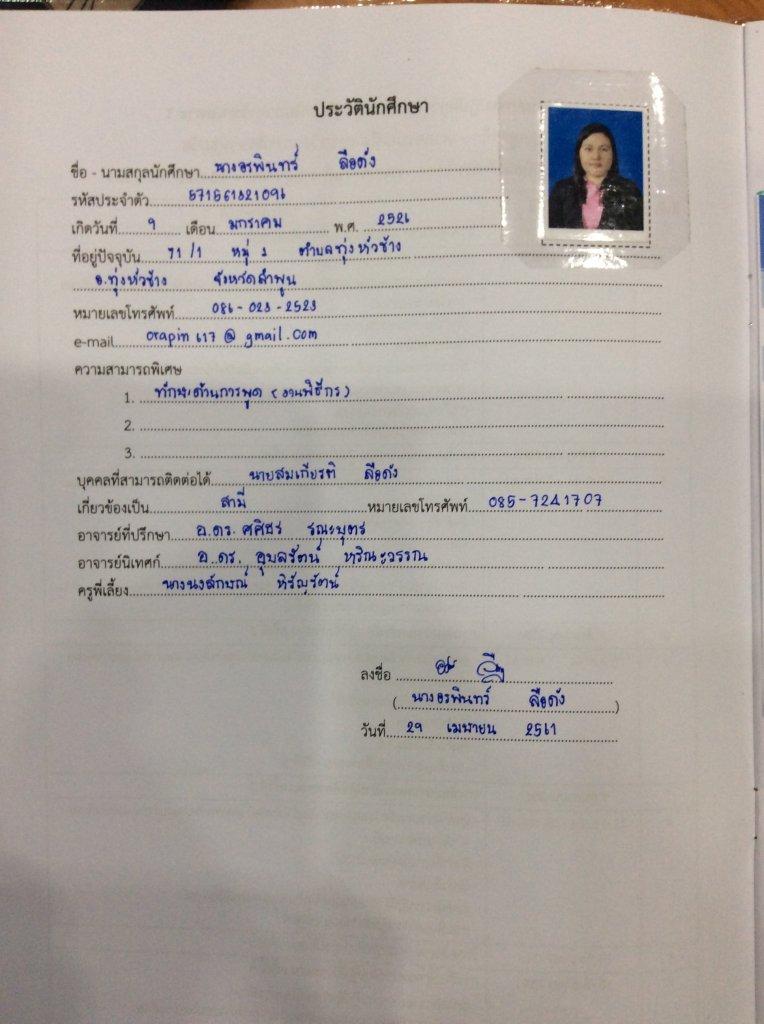 ประวัตินักศึกษา
ชื่อ - นามสกุลนักศึกษา นางอรพินทร์ ลือดัง
รหัสประจำตัว 571561321096
เกิดวันที่ 9 เดือน มกราคม พ.ศ. 2526
ที่อยู่ปัจจุบัน 71/1 หมู่ 1 ตำบลทุ่งหัวช้าง
อ.ทุ่งหัวช้าง จังหวัดลำพูน
หมายเลขโทรศัพท์ 086-023-2523
e-mail orapin617@gmail.com
ความสามารถพิเศษ
1. ทักษะด้านการพูด (งานพิธีกร)
2.
3.
บุคคลที่สามารถติดต่อได้ นายสมเกียรติ ลือดัง
เกี่ยวข้องเป็น สามี หมายเลขโทรศัพท์ 085-7241707
อาจารย์ที่ปรึกษา อ.ดร. ศศิธร รณะบุตร
อาจารย์นิเทศก์ อ.ดร. อุบลรัตน์ หริณะวรรณ
ครูพี่เลี้ยง นางนงลักษณ์ หิรัญรัตน์
ลงชื่อ
(นางอรพินทร์ ลือดัง)
วันที่ 29 เมษายน 2561